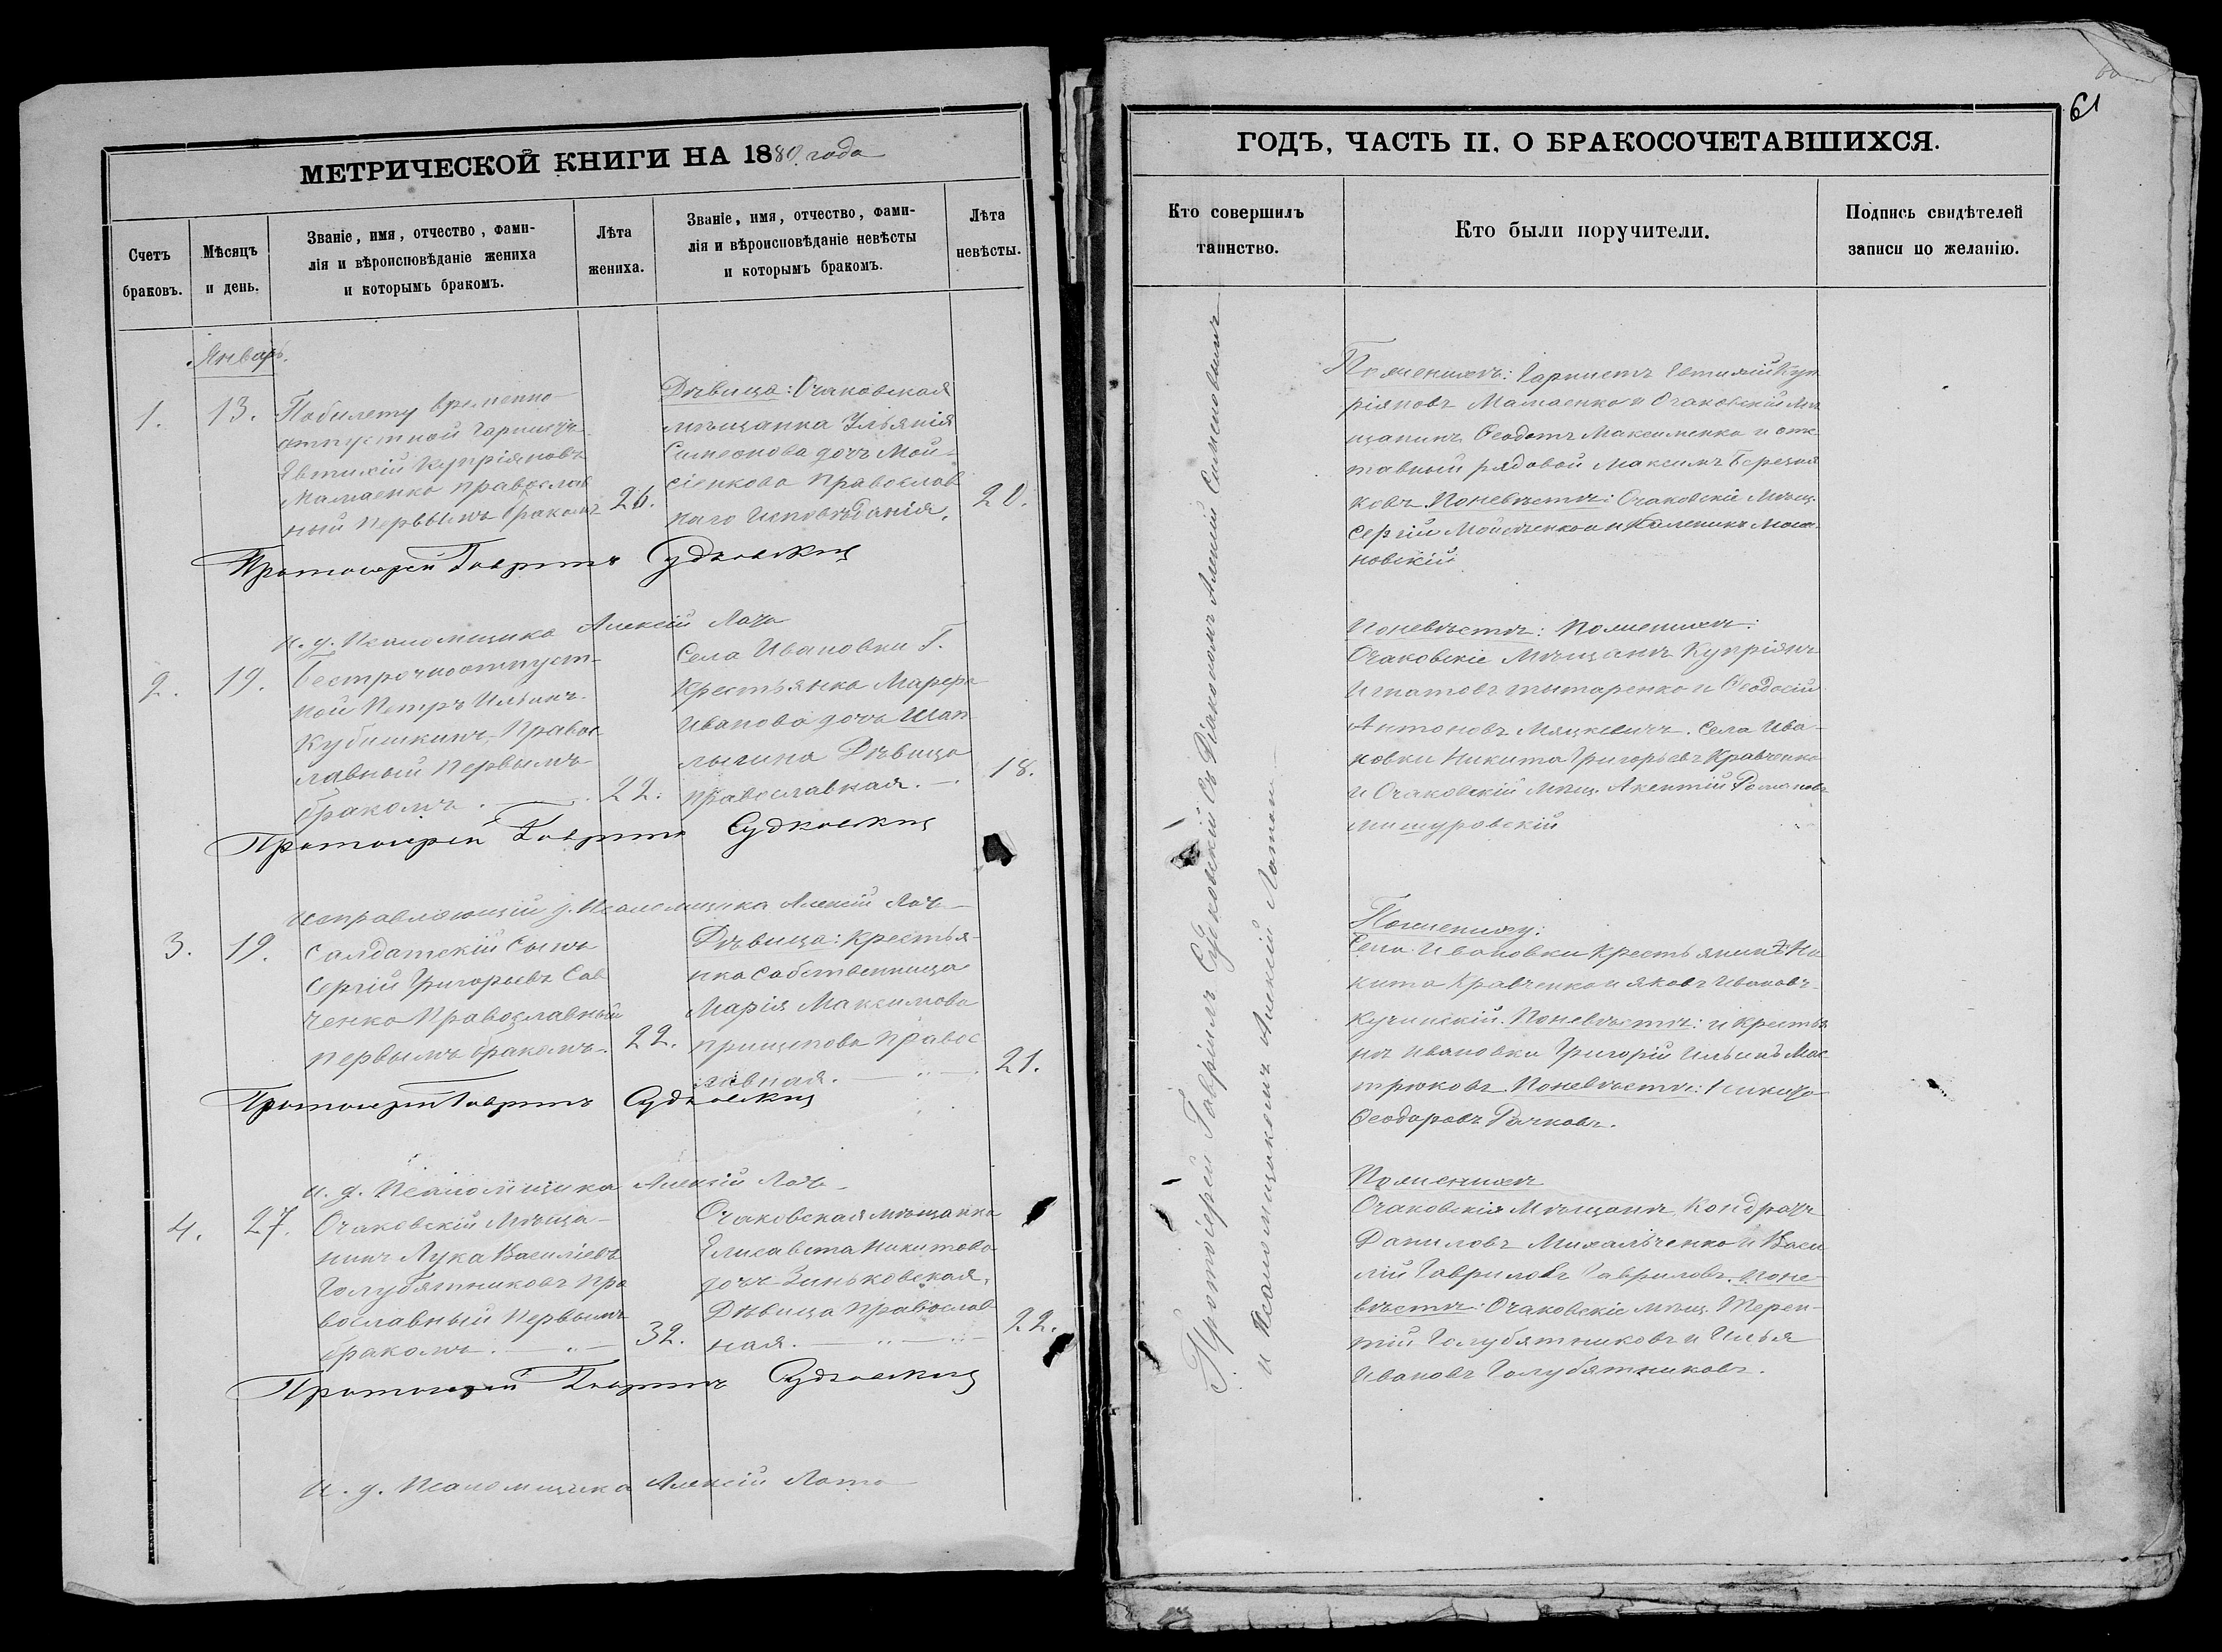 МЕТРИЧЕСКОЙ КНИГИ НА 1880. года
Счетъ
браковъ.
Мѣсяцъ
и день.
Званіе, имя, отчество, фами-
лія и вѣроисповѣданіе жениха
и которымъ бракомъ.
Лѣта
жениха.
Званіе, имя, отчество, фами-
лія и вѣроисповѣданіе невѣсты
и которымъ бракомъ.
Лѣта
невѣсты.
Январь.
1.
13.
По билету временно
отпустной
Евтихій Купріяновъ
Мамаенко православ
ный первымъ бракомъ
26.
Дѣвица: Очаковская
мѣщанка Ульянія
Симеонова дочь Мой-
сіенкова Православ
наго Исповѣданія.
20.
Протоіерей Гавріилъ Судковскій
и. д. Псаломщика Алексій Лото
2.
19.
Безсрочноотпуст-
ной Петръ Ильинъ
Кубышкинъ, Правос
лавный первымъ
бракомъ.
22.
Села Ивановки
крестьянка
Иванова дочь Шап
лыгина Дѣвица
православная.
18.
Протоіерей Гавріилъ Судковскій
исправляющій д. Псаломщика Алексій Лото
3.
19.
Салдатскій Сынъ
Сергій Григорьевъ Сав
ченко Православный
первымъ бракомъ.
22.
Дѣвица: Крестья-
нка собственница
Марія Максимова
прищепова правос
лавная.
21.
Протоіерей Гавріилъ Судковскій
и. д. Псаломщика Алексій Лото
4.
27.
Очаковскій Мѣща-
нинъ Лука Василіевъ
Голубятниковъ пра
вославный Первымъ
бракомъ.
32.
Очаковская мѣщанка
Елисавета Никитова
дочь Зиньковская,
Дѣвица Православ
ная.
22.
Протоіерей Гавріилъ Судковскій
и. д. Псаломщика Алексій Лото
61
ГОДЪ, ЧАСТЬ II, О БРАКОСОЧЕТАВШИХСЯ.
Кто совершилъ
таинство.
Кто были поручители.
Подпись свидѣтелей
записи по желанію.
Протоіерей Гавріилъ Судковскій съ Діакономъ Алексій Симеоновымъ
и Псаломщикомъ Алексій Лотом
По женихѣ: Евтихій Куп
ріяновъ Мамаенко и Очаковскій Мѣ
щанинъ Ѳеодотъ Максименко и отс
тавный рядовой Максимъ
ковъ. По невѣстѣ: Очаковскіе Мѣщ.
Сергій Мойсѣенко и Каленикъ
новскій
По невѣстѣ: По женихѣ:
Очаковскіе Мѣщане Купріянъ
Игнатовъ титаренко и Ѳеодосій
Антоновъ Мяцкевичъ. Села Ива-
новки Никита Григорьевъ Кравченко
и Очаковскій Мѣщ. Акентій Романовъ
мишуровскій
По жениху:
Села Ивановки крестьянинъ Ни
кита Кравченко и Яковъ Ивановъ
Кучинскій. По невѣстѣ: и крестья
нъ Ивановки Григорій Ильинъ Мас
трюковъ По невѣстѣ:
Ѳеодоровъ Рачковъ.
По женихѣ
Очаковскія Мѣщане Кондратъ
Даниловъ Михальченко и Васи
лій Гавриловъ Гавриловъ. По не-
вѣстѣ: Очаковскіе мѣщ. Терен-
тій Голубятниковъ и Илья
Ивановъ Голубятниковъ.